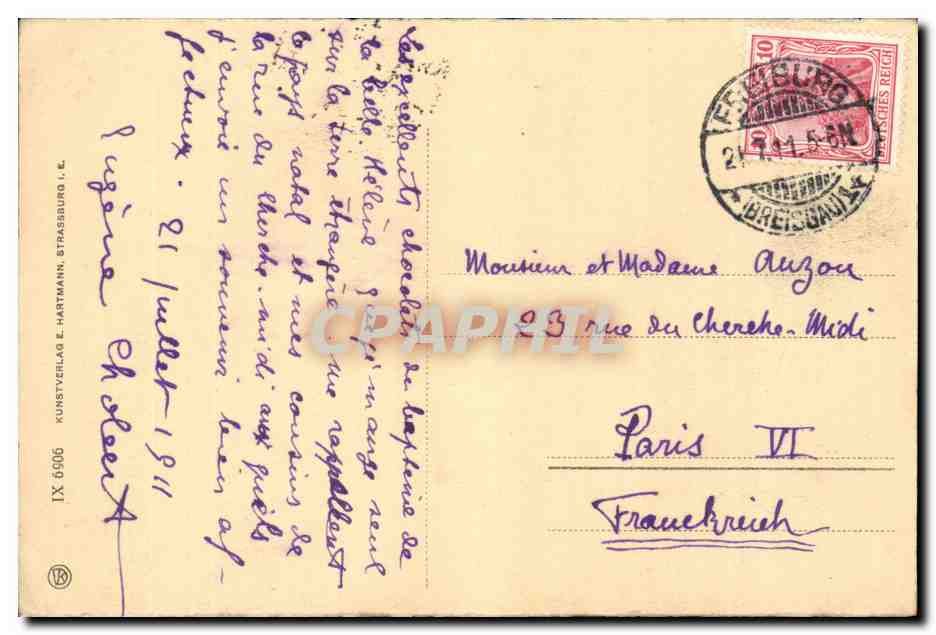 Les excellents chocolats de baptême de
la belle Hélène que je mange seul
sur la terre étrangère me rappellent
le pays natal et mes cousins de
la rue du Cherche-midi auxquels
j'envoie un souvenir bien af-
fectueux. 21 juillet 1911
Eugène
10
10
DEUTSCHES REICH
FREIBURG
21.7.11.5-6N
(BREISGAU)
Monsieur et Madame Auzou
23 rue du Cherche-Midi
Paris VI
Franckreich
CPAPHIL
KUNSTVERLAG E. HARTMANN, STRASSBURG I. E.
IX 6906